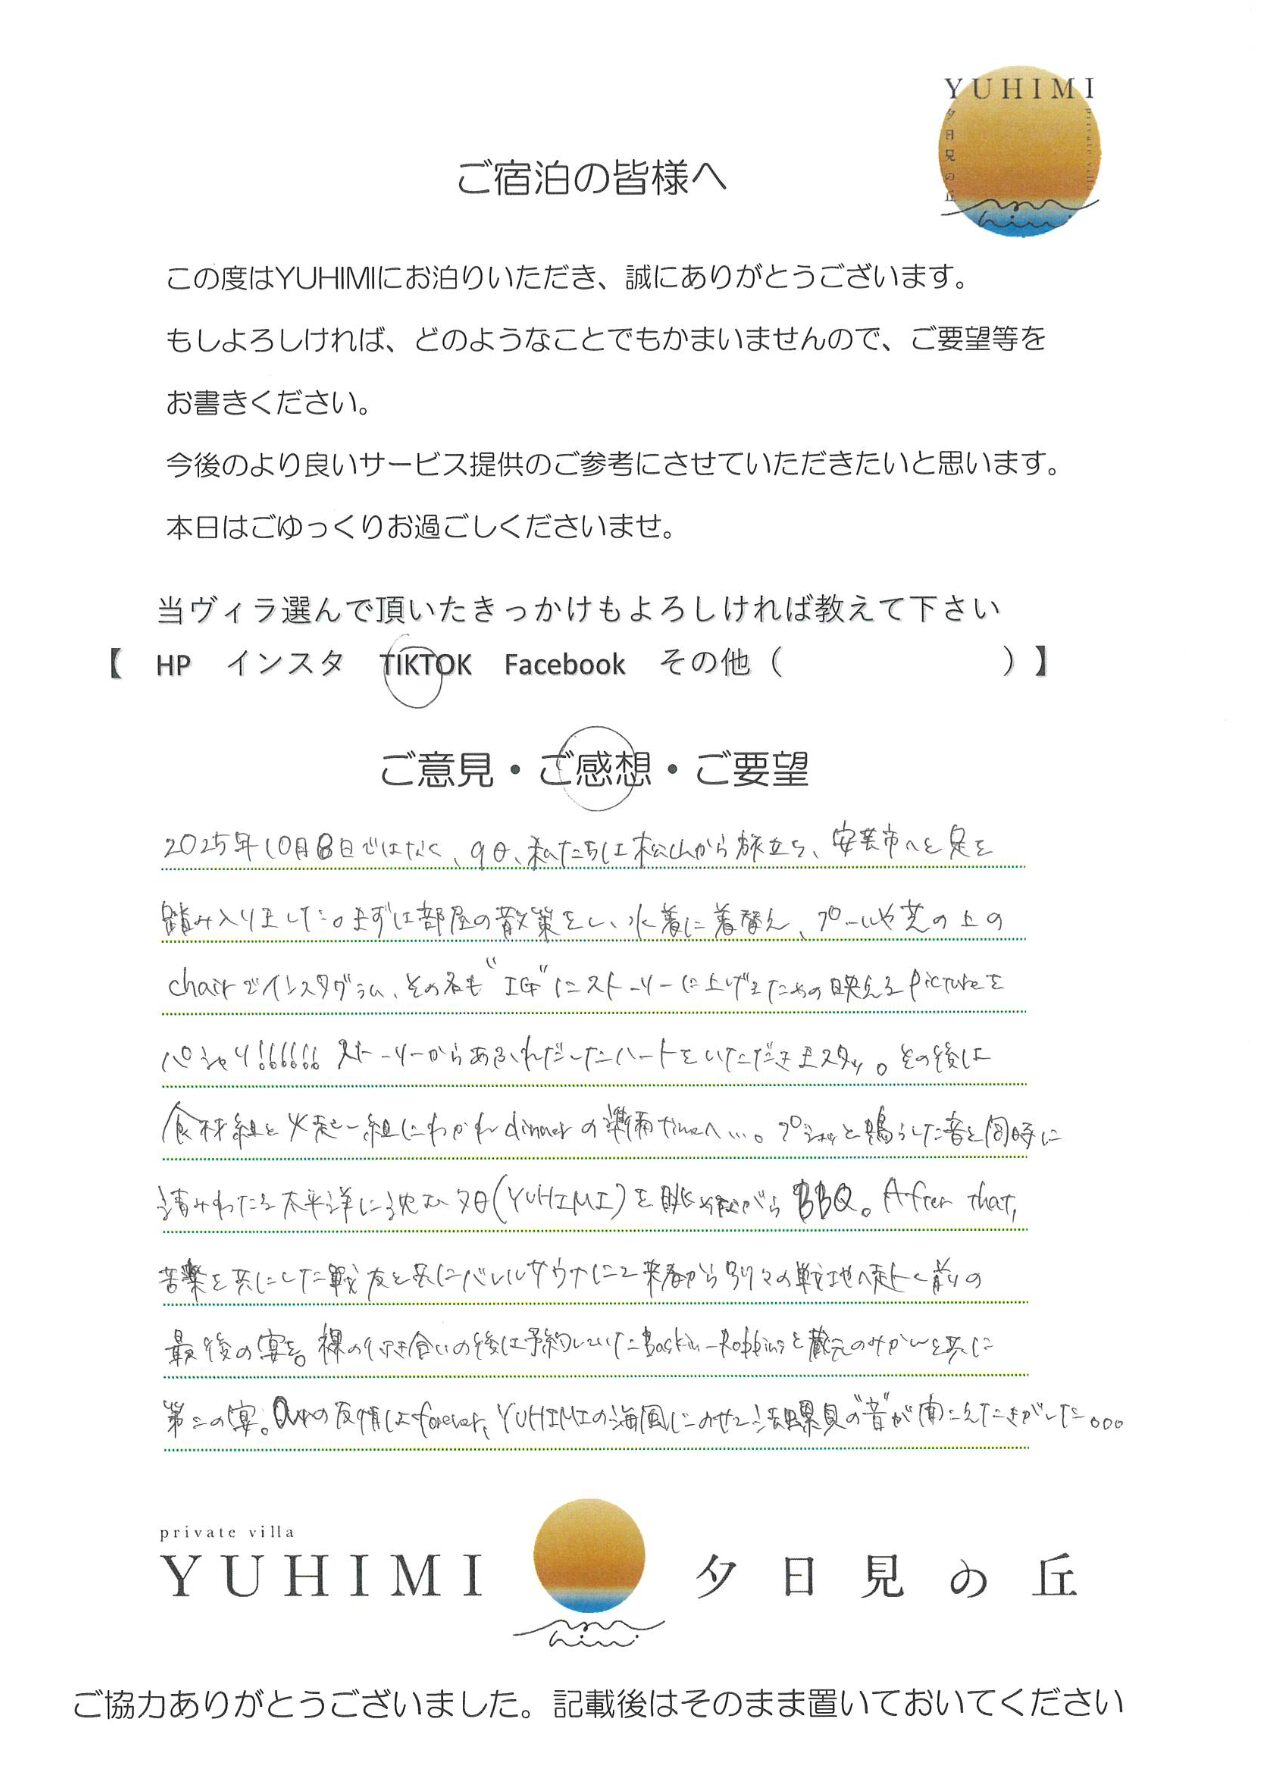 YUHIMI
夕日見の丘
ご宿泊の皆様へ
この度はYUHIMIにお泊りいただき、誠にありがとうございます。
もしよろしければ、どのようなことでもかまいませんので、ご要望等を
お書きください。
今後のより良いサービス提供のご参考にさせていただきたいと思います。
本日はごゆっくりお過ごしくださいませ。
当ヴィラ選んで頂いたきっかけもよろしければ教えて下さい
【 HP インスタ TIKTOK Facebook その他（ ）】
ご意見・ご感想・ご要望
2025年10月8日ではなく、9日、私たちは松山から旅立ち、安芸市へと足を
踏み入りました。まずは部屋の散策をし、水着に着替え、プールや芝の上の
chairでインスタグラム、その名も"IG"にストーリーに上げるための映えるpictureを
パシャリ!!!!!! ストーリーからあふれだしたハートをいただきまスタッ。その後は
食材組と火起こし組にわかれdinnerの準備timeへ...。プシャッと鳴らした音と同時に
済みわたる太平洋に沈む夕日(YUHIMI)を眺めながらBBQ。After that,
苦楽を共にした戦友と共にバレルサウナにて来春から別々の戦地へ赴く前の
最後の宴を。裸の付き合いの後は予約していたBaskin-Robbinsと蔵元のみかんと共に
第二の宴。Ourの友情はforever, YUHIMIの海風にのせて法螺貝の"音"が聞こえたきがした。。。
private villa
YUHIMI 夕日見の丘
ご協力ありがとうございました。記載後はそのまま置いておいてください